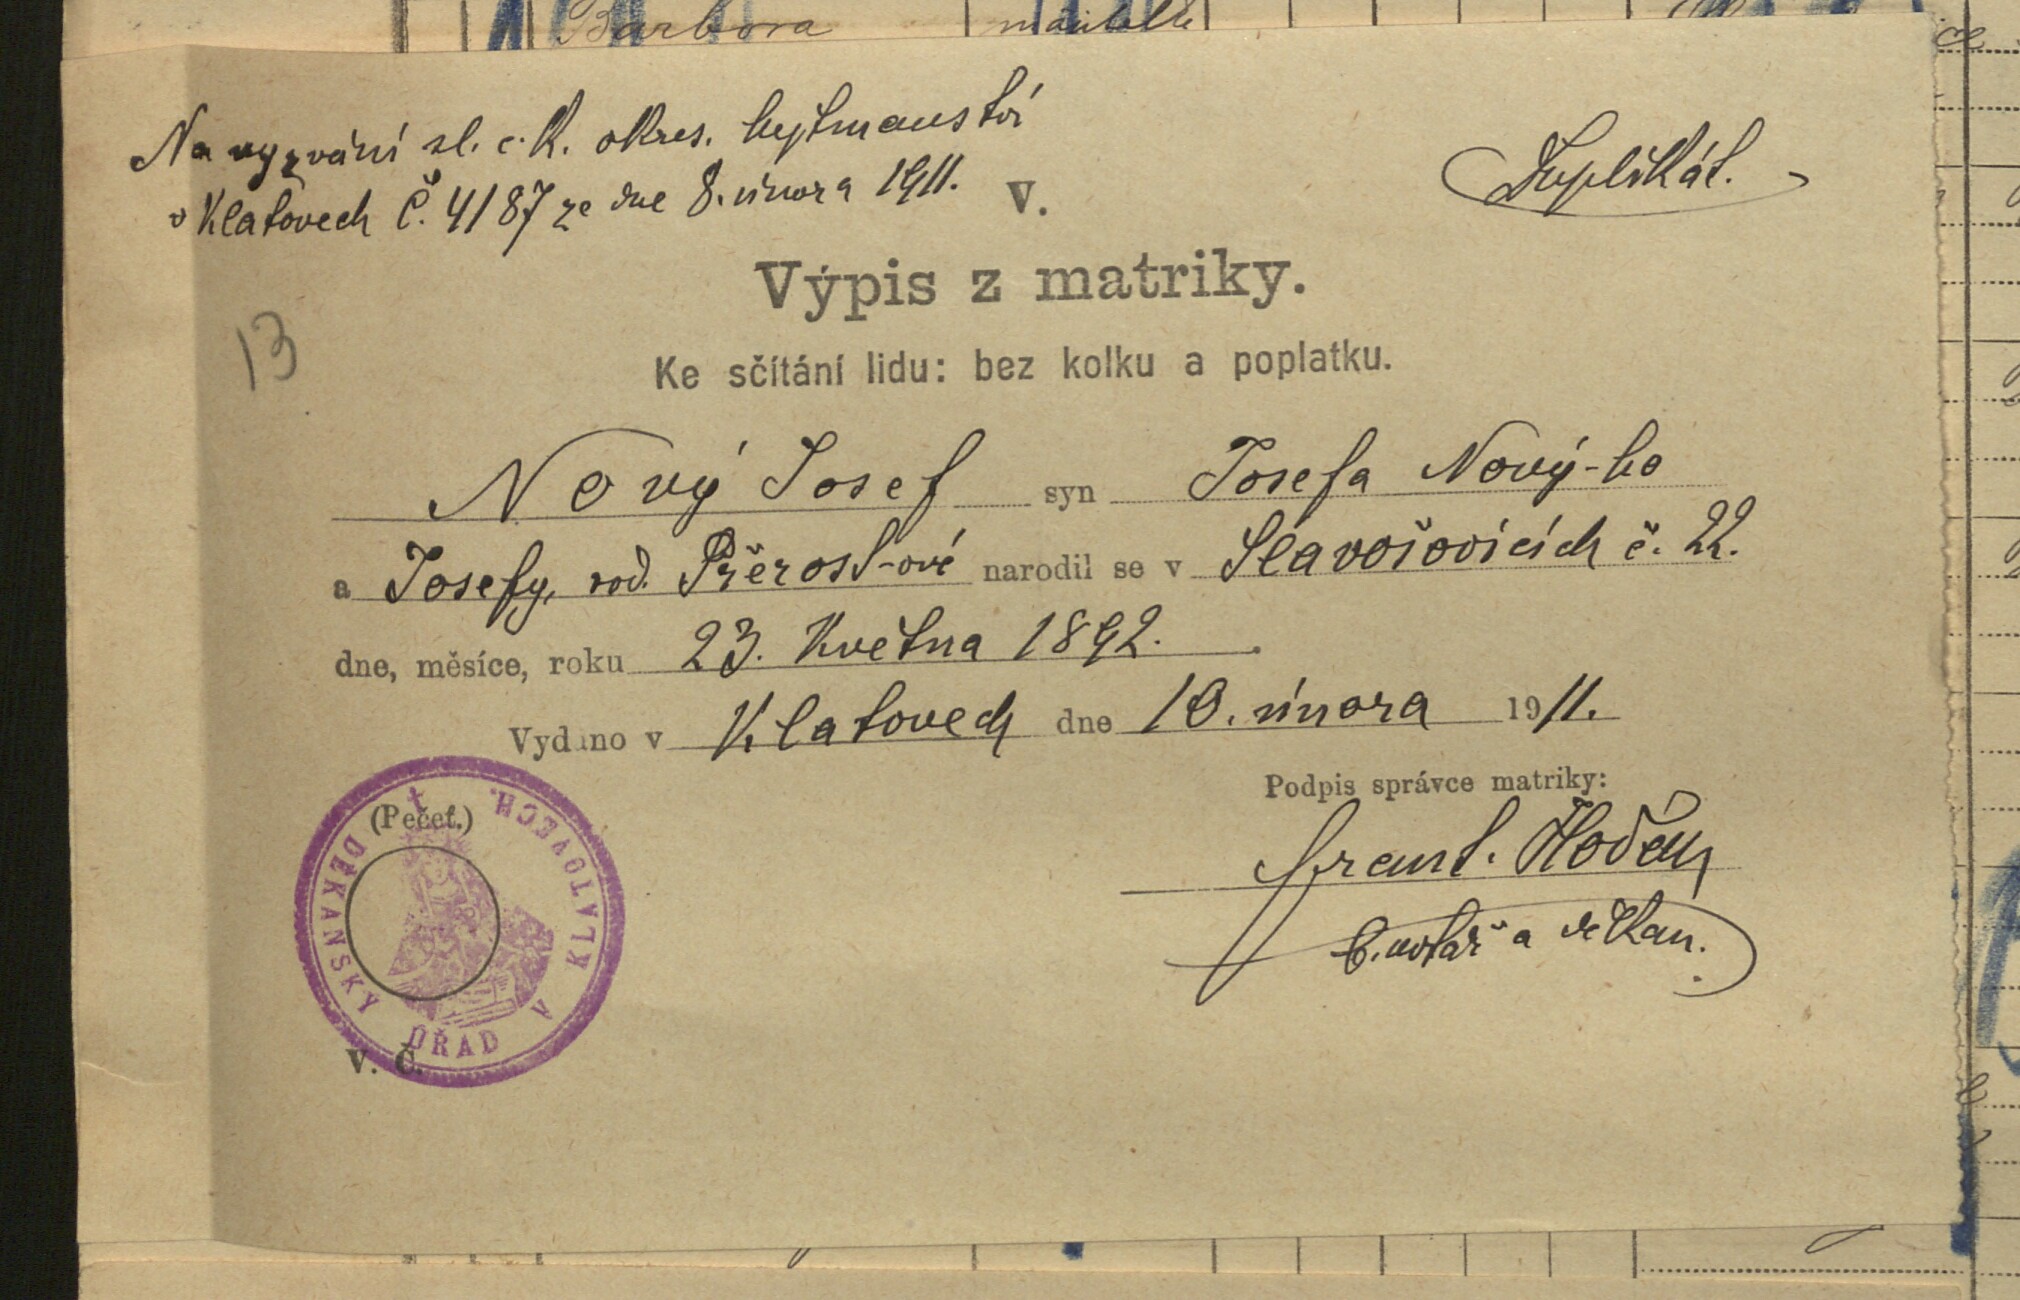 Barbora
Na vyzvání sl. c. k. okres. hejtmanství
v Klatovech č. 4187 ze dne 8. února 1911.
Duplikát.
V.
Výpis z matriky.
13
Ke sčítání lidu: bez kolku a poplatku.
Nový Josef syn Josefa Nový-ho
a Josefy, rod. Přerost-ové narodil se v Slavošovicích č. 22.
dne, měsíce, roku 23. Května 1892.
Vydáno v Klatovech dne 10. února 1911.
Podpis správce matriky:
(Pečeť.)
DĚKANSKÝ ÚŘAD V KLATOVECH.
Frant.
b. notář a děkan.
V. Č.